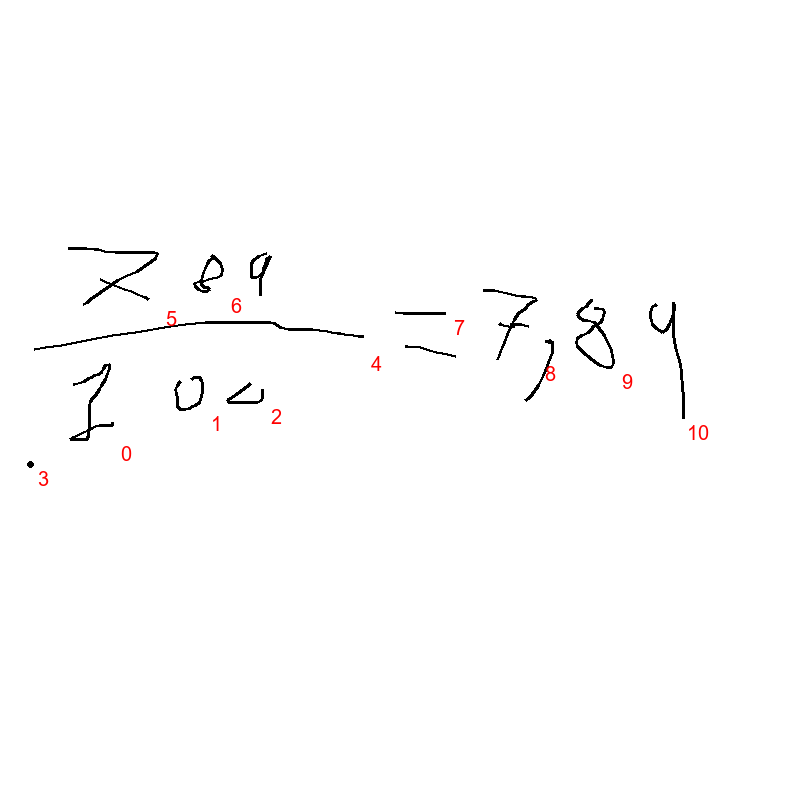 789
100
= 7,89
5 6 7 4 8 9 10 1 2 0 3